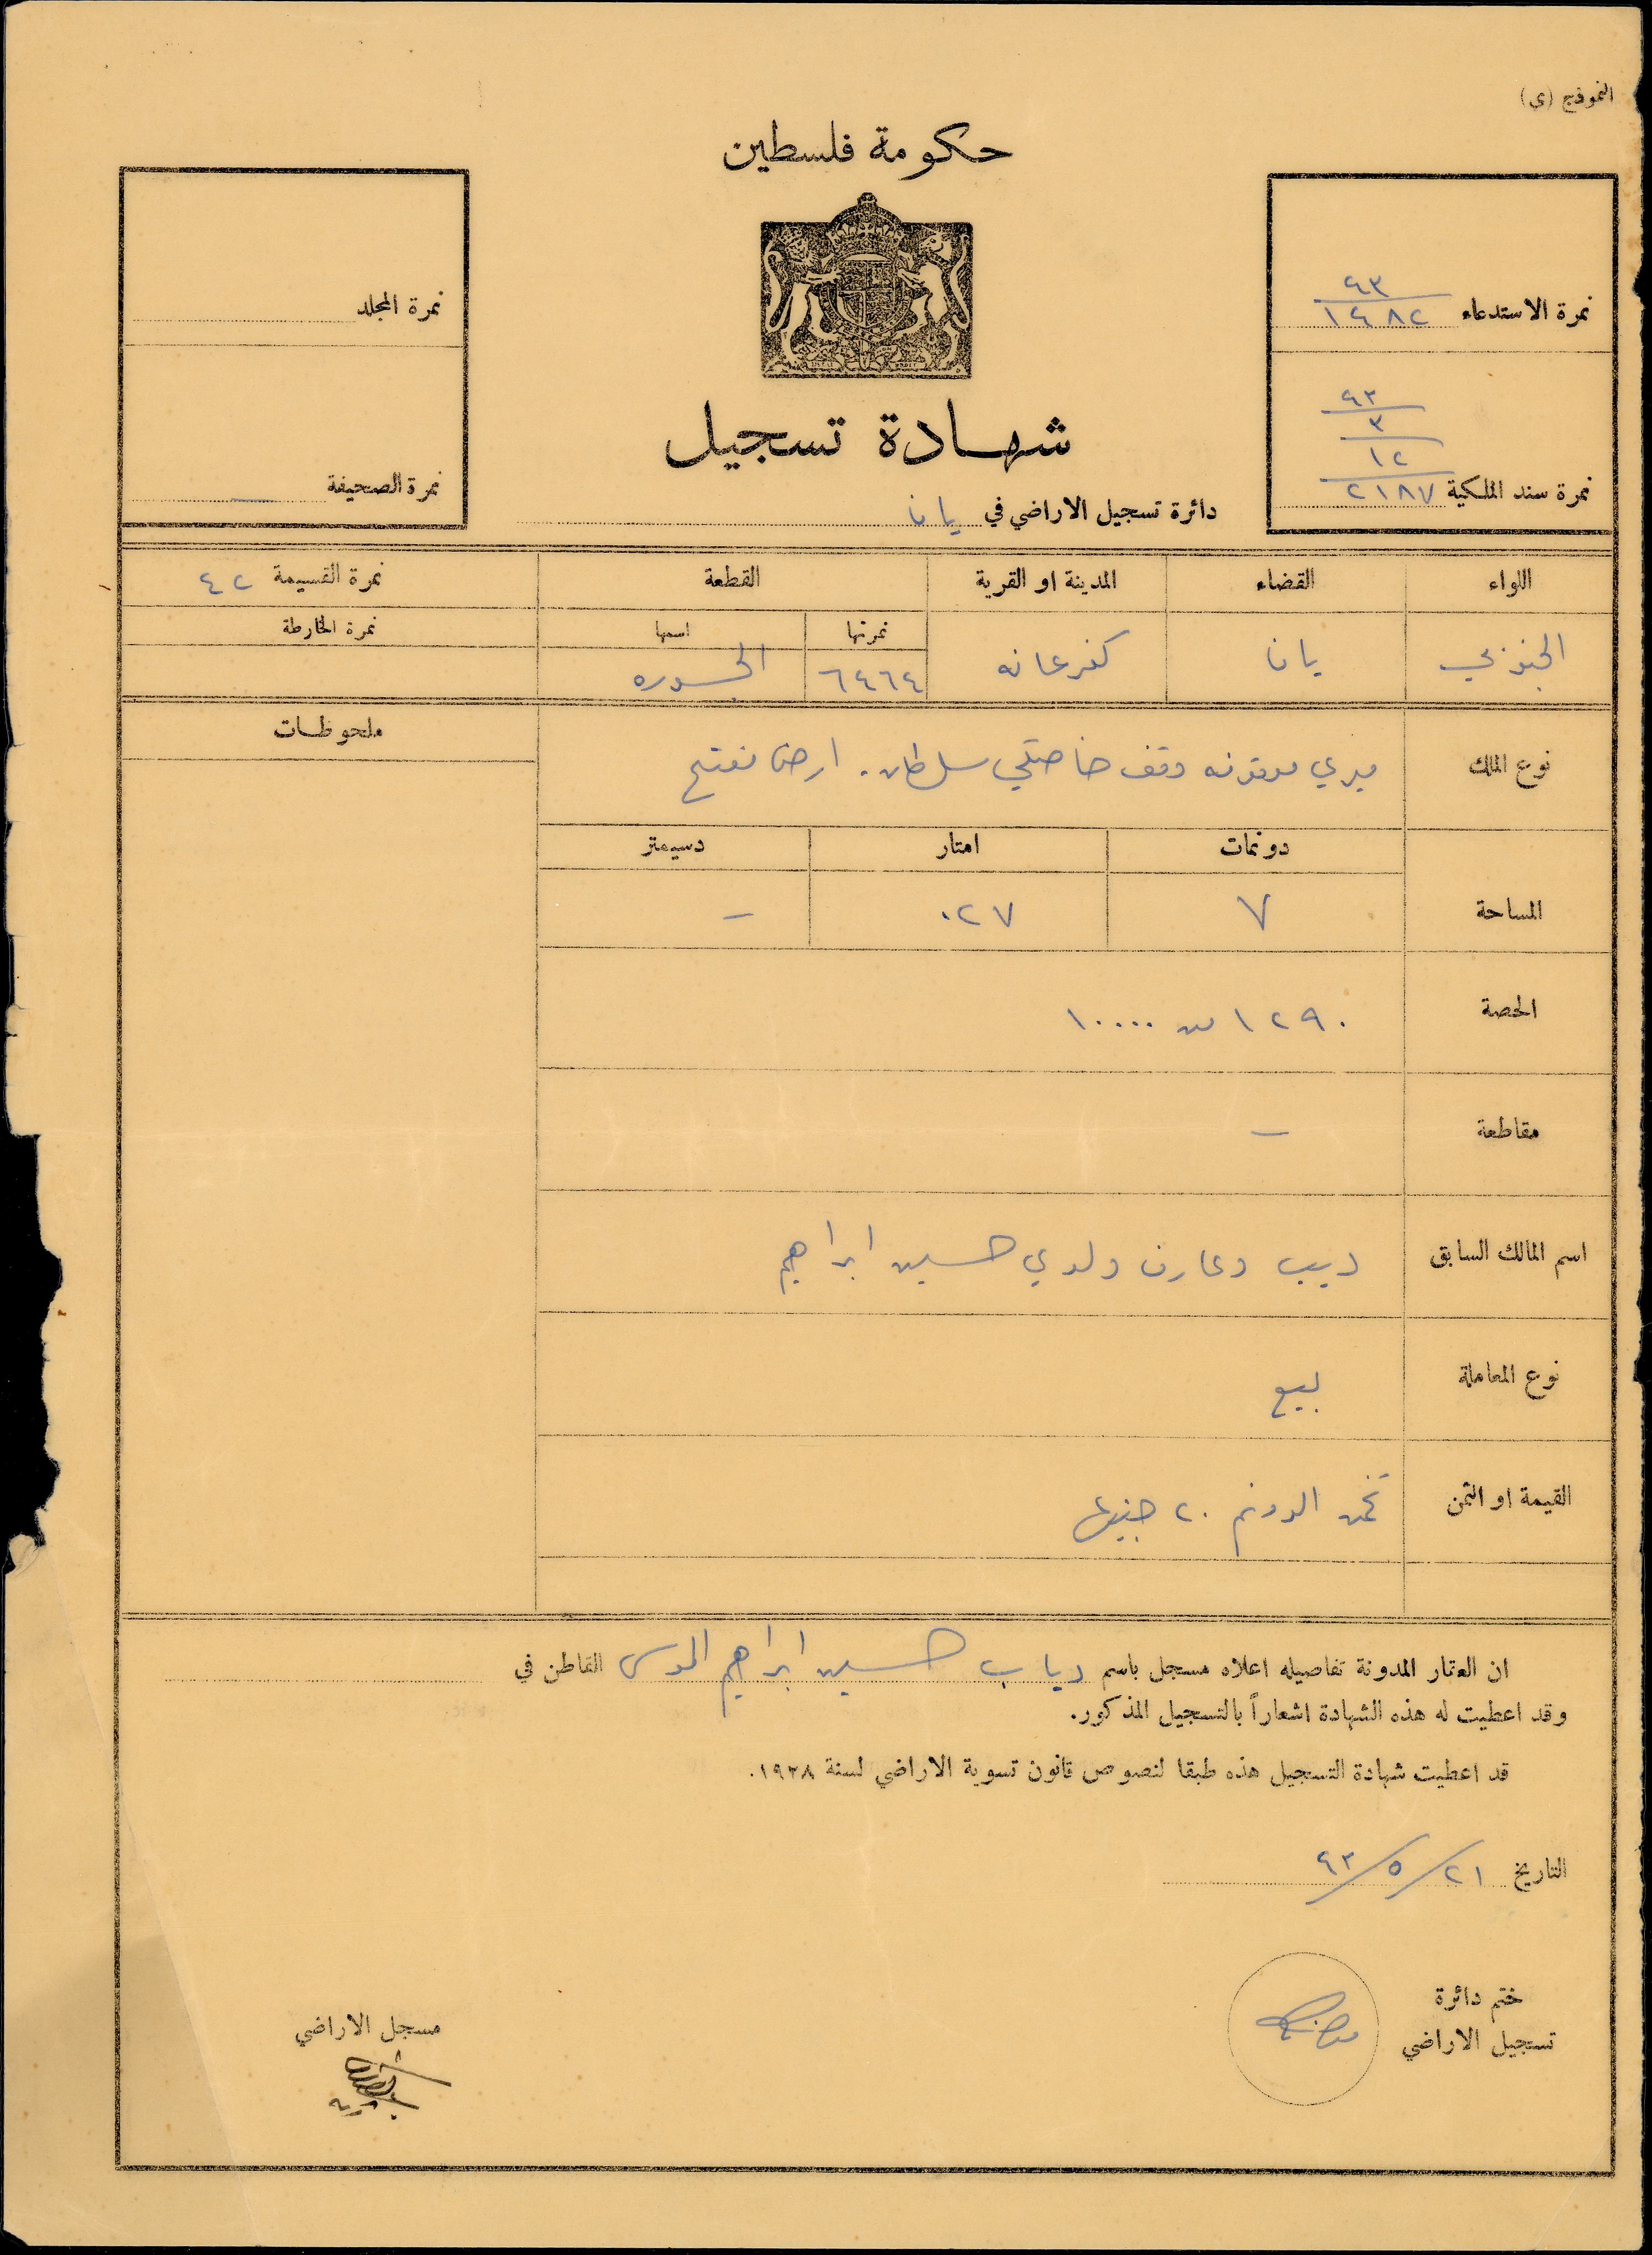 النموذج (ى)
حكومة فلسطين
نمرة الاستدعاء ٤٣ / ١٤٨٢
نمرة المجلد
نمرة سند الملكية ٤٣ / ٣ / ١٢ / ٢١٨٧
نمرة الصحيفة —
شهادة تسجيل
دائرة تسجيل الاراضي في يافا
اللواء القضاء المدينة او القرية القطعة نمرة القسيمة ٤٢
نمرتها اسمها نمرة الخارطة
الجنوبي يافا كفرعانه ٦٤٦٤
ملحوظات
نوع الملك ميري موقوفه وقف خاصكي سلطان. ارض تفتلح
دونمات امتار دسيمتر
المساحة ٧ ٠٢٧ –
الحصة ١٢٩٠ من ١٠٠٠٠
مقاطعة –
اسم المالك السابق ديب وعارف ولدي حسين ابراهيم
نوع المعاملة بيع
القيمة او الثمن ثمن الدونم ٢٠ جنيها
ان العقار المدونة تفاصيله اعلاه مسجل باسم دياب حسين ابراهيم الموسى القاطن في
وقد اعطيت له هذه الشهادة اشعاراً بالتسجيل المذكور.
قد اعطيت شهادة التسجيل هذه طبقا لنصوص قانون تسوية الاراضي لسنة ١٩٢٨.
التاريخ ٢١/٥/٤٣
ختم دائرة
تسجيل الاراضي
مسجل الاراضي